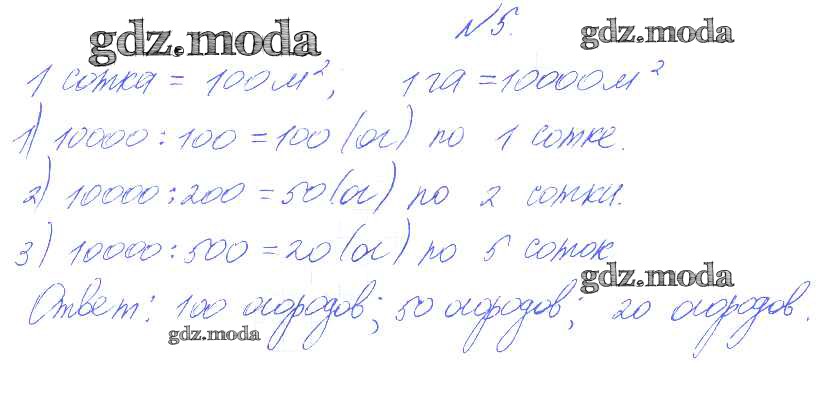 №5.
gdz.moda gdz.moda
1 сотка = 100 м²; 1 га = 10000 м²
1) 10000 : 100 = 100 (ог) по 1 сотке.
2) 10000 : 200 = 50 (ог) по 2 сотки.
3) 10000 : 500 = 20 (ог) по 5 соток
gdz.moda
Ответ: 100 огородов; 50 огородов; 20 огородов.
gdz.moda